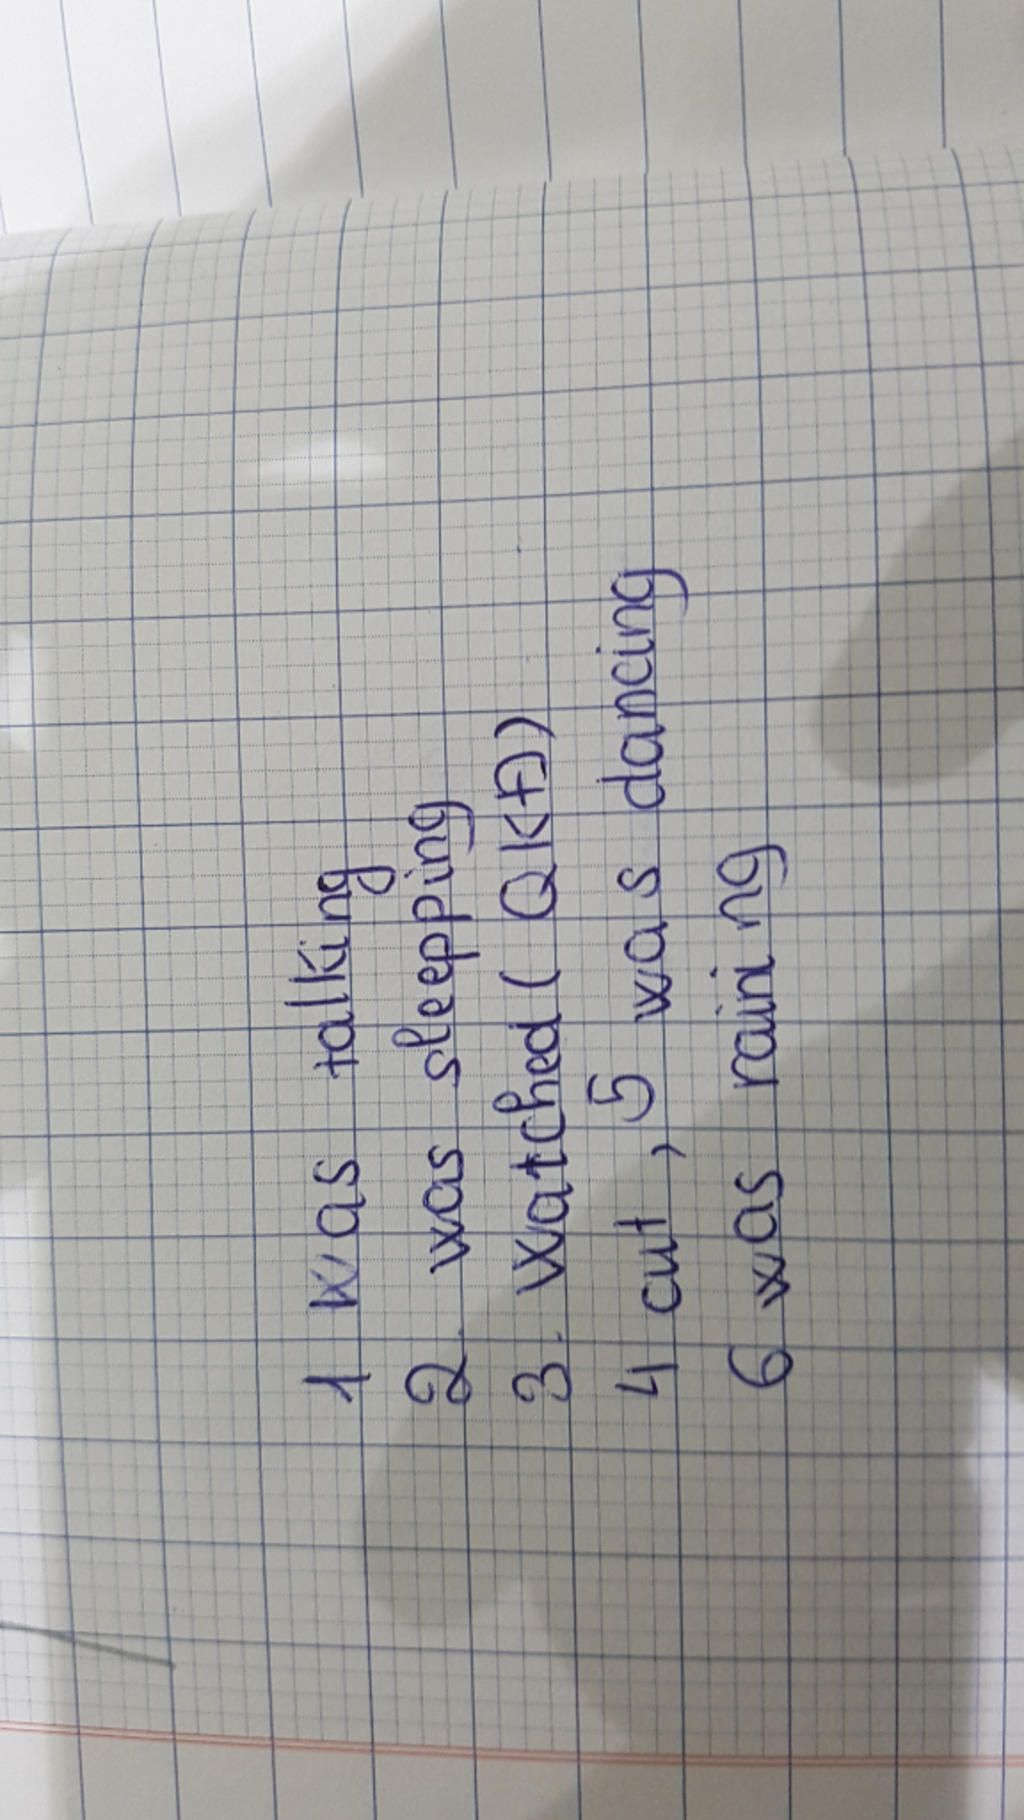 1 was talking
2. was sleepping
3. watched ( QKĐ)
4 cut, 5 was dancing
6 was raining